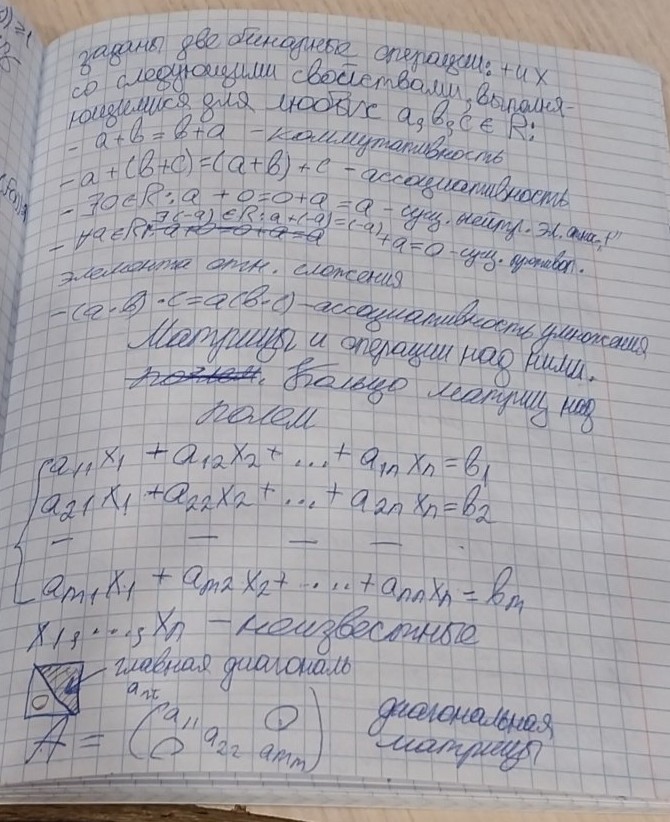 заданы две бинарные операции: + и ×
со следующими свойствами, выполня-
ющимися для любых a, b, c ∈ R:
- a+b = b+a - коммутативность
- a+(b+c)=(a+b)+c - ассоциативность
- ∃0∈R: a + 0=0+a =a - сущ. нейтр. эл. отн. „+"
- ∀a∈R ∃(-a)∈R: a+(-a)=(-a)+a=0 - сущ. противоп.
элемента отн. сложения
- (a·b)·c=a(b·c) - ассоциативность умножения
Матрицы и операции над ними.
Кольцо матриц над
полем
a11 x1 + a12 x2 + ... + a1n xn = b1
a21 x1 + a22 x2 + ... + a2n xn = b2
— — — —
am1 x1 + am2 x2 + ..... + ann xn = bm
x1, ..., xn - неизвестные
главная диагональ
0
A = ( a11 0
0 a22 amm )
диагональная
матрицы